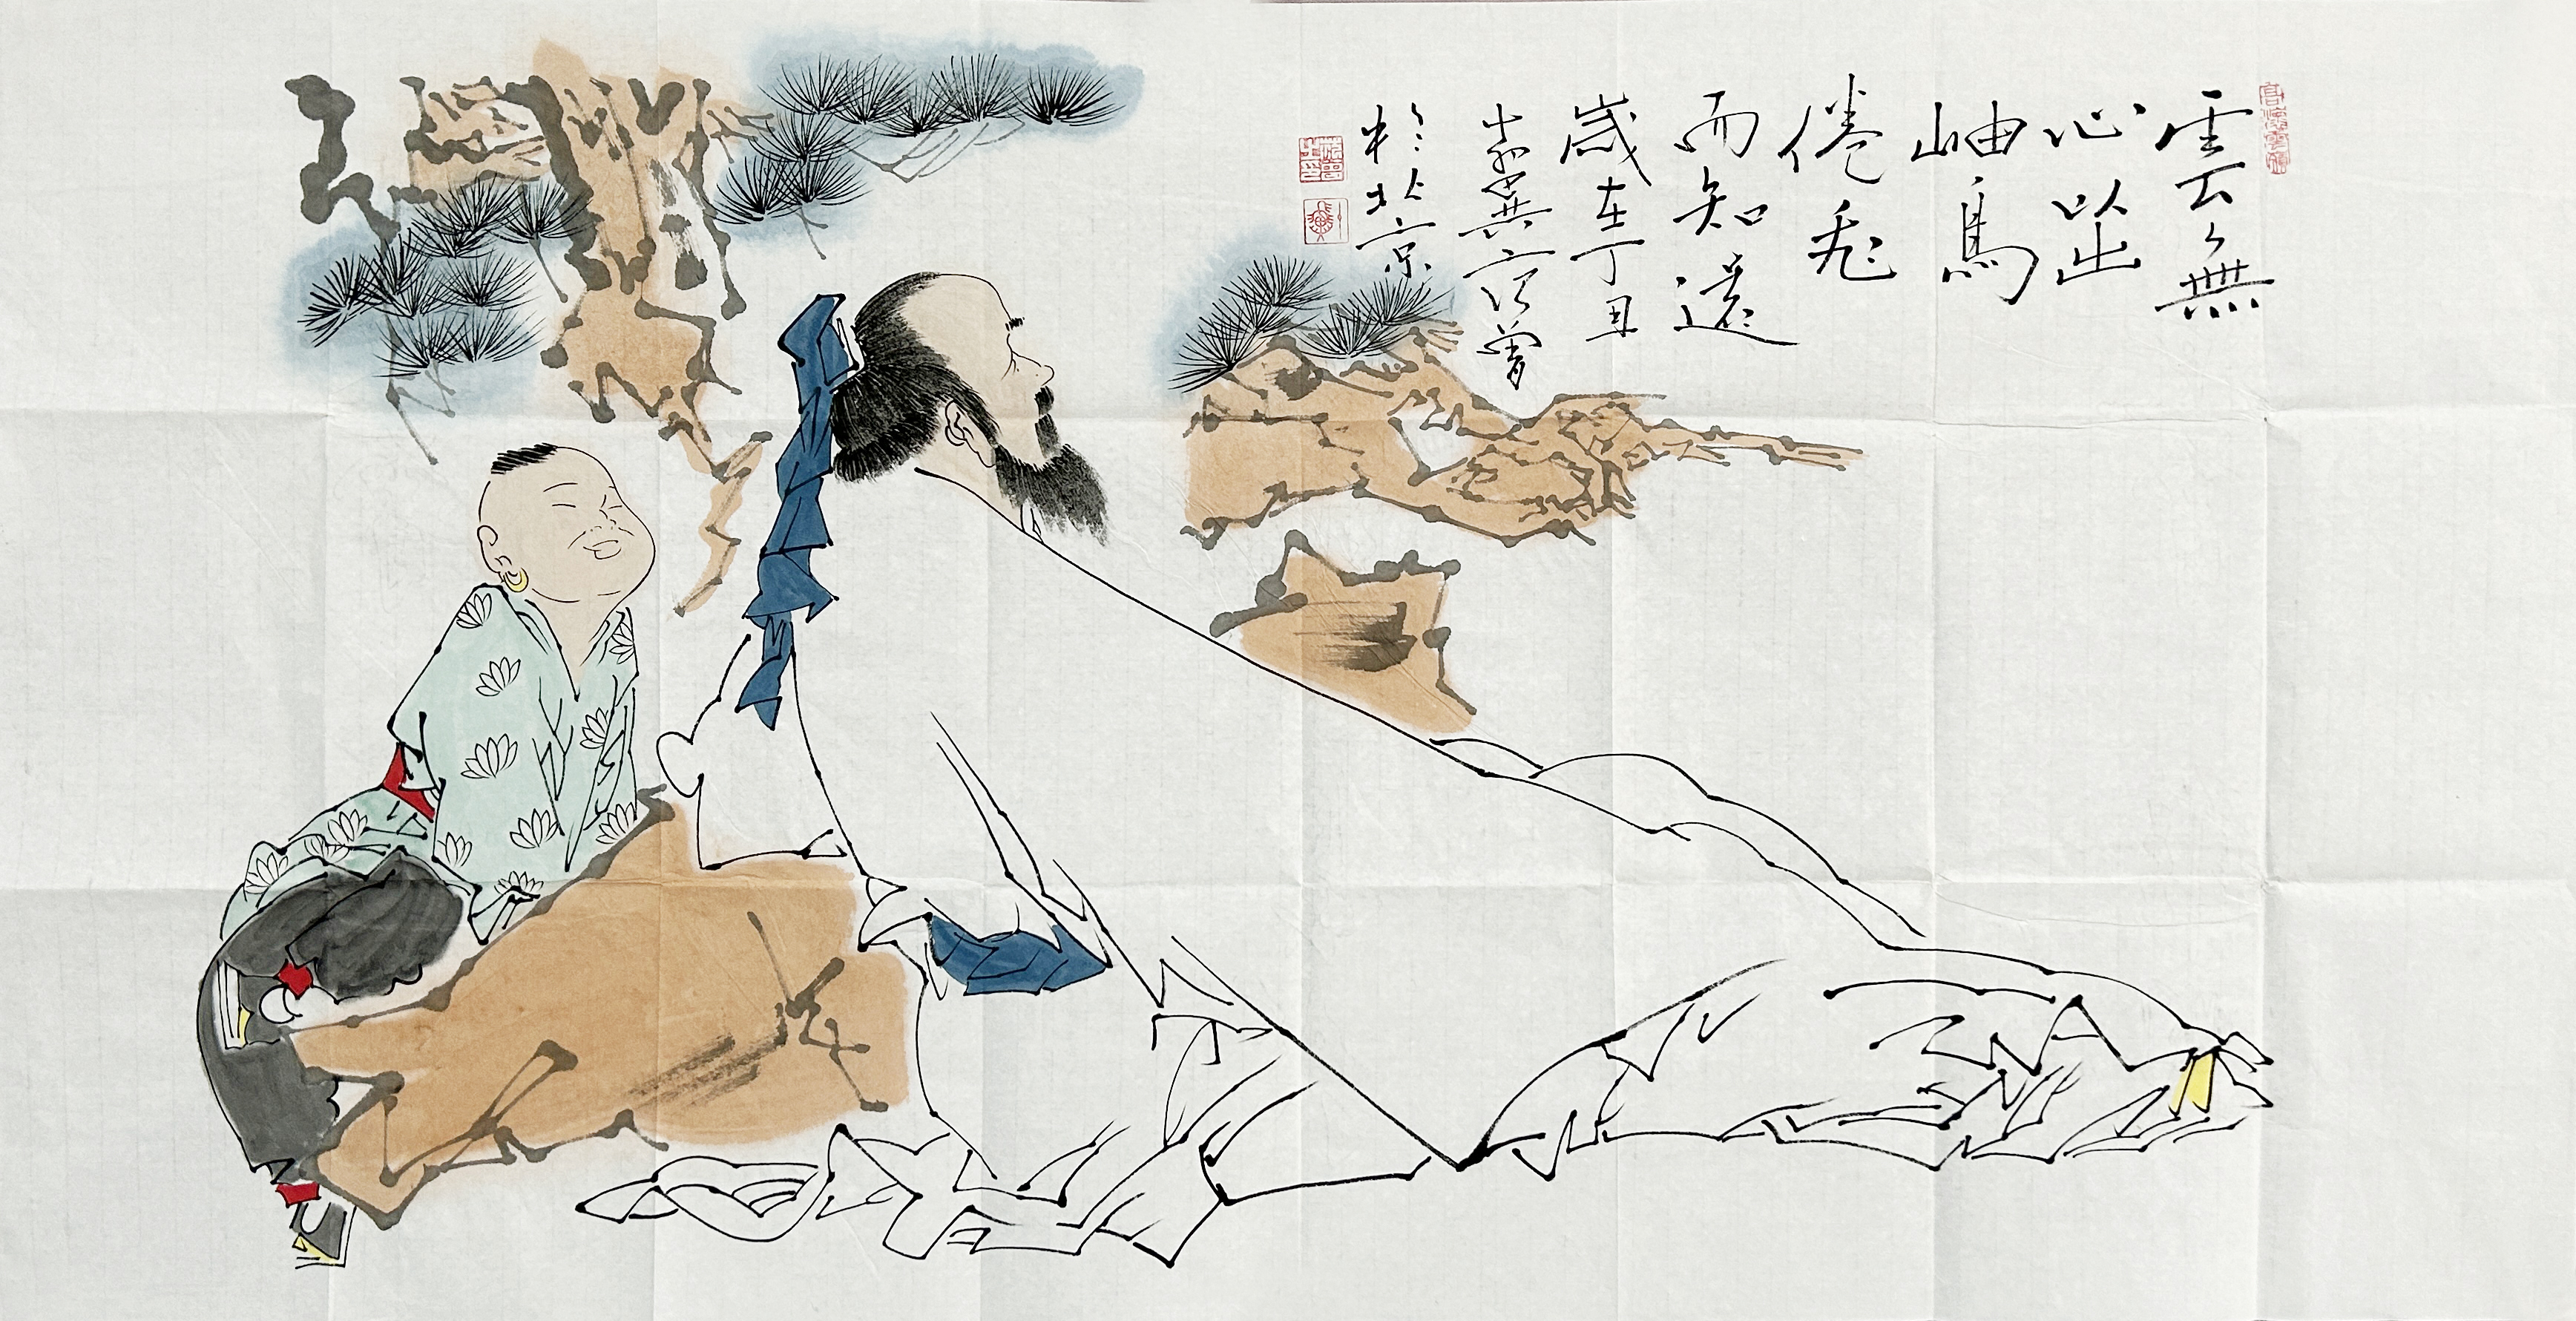 雲無
心以出
岫鳥
倦飛
而知還
歲在丁丑
十翼范曾
於北京